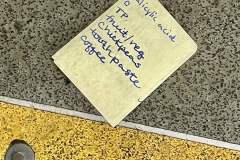 alicylic acid
TP
fruit/veg
chickpeas
toothpaste
coffee